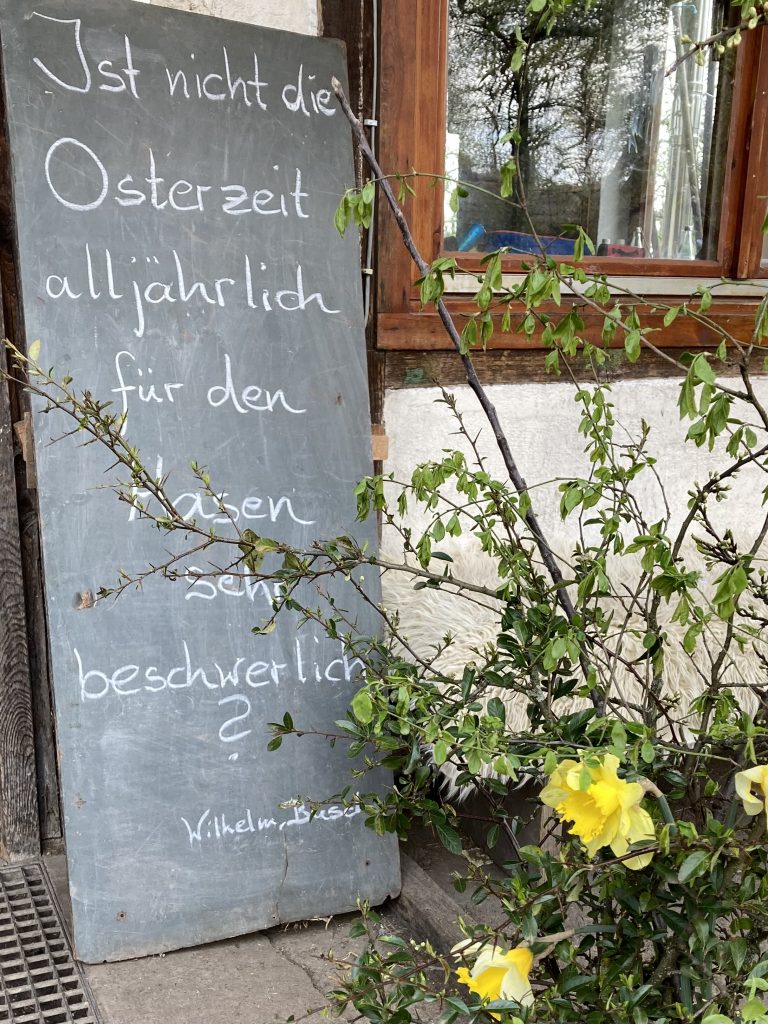 Ist nicht die
Osterzeit
alljährlich
für den
Hasen
sehr
beschwerlich
?
Wilhelm, Busch